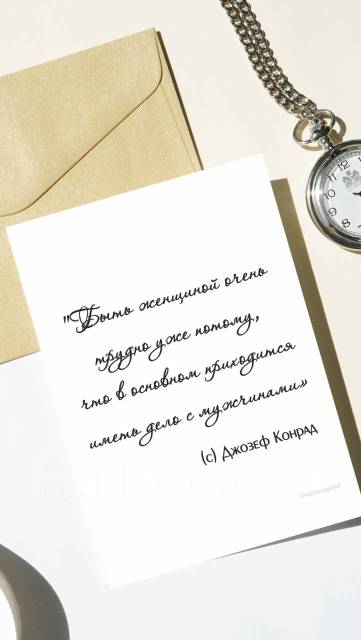 "Быть женщиной очень
трудно уже потому,
что в основном приходится
иметь дело с мужчинами»
(с) Джозеф Конрад
FarPost.ru
12
11
10
9
8
7
6